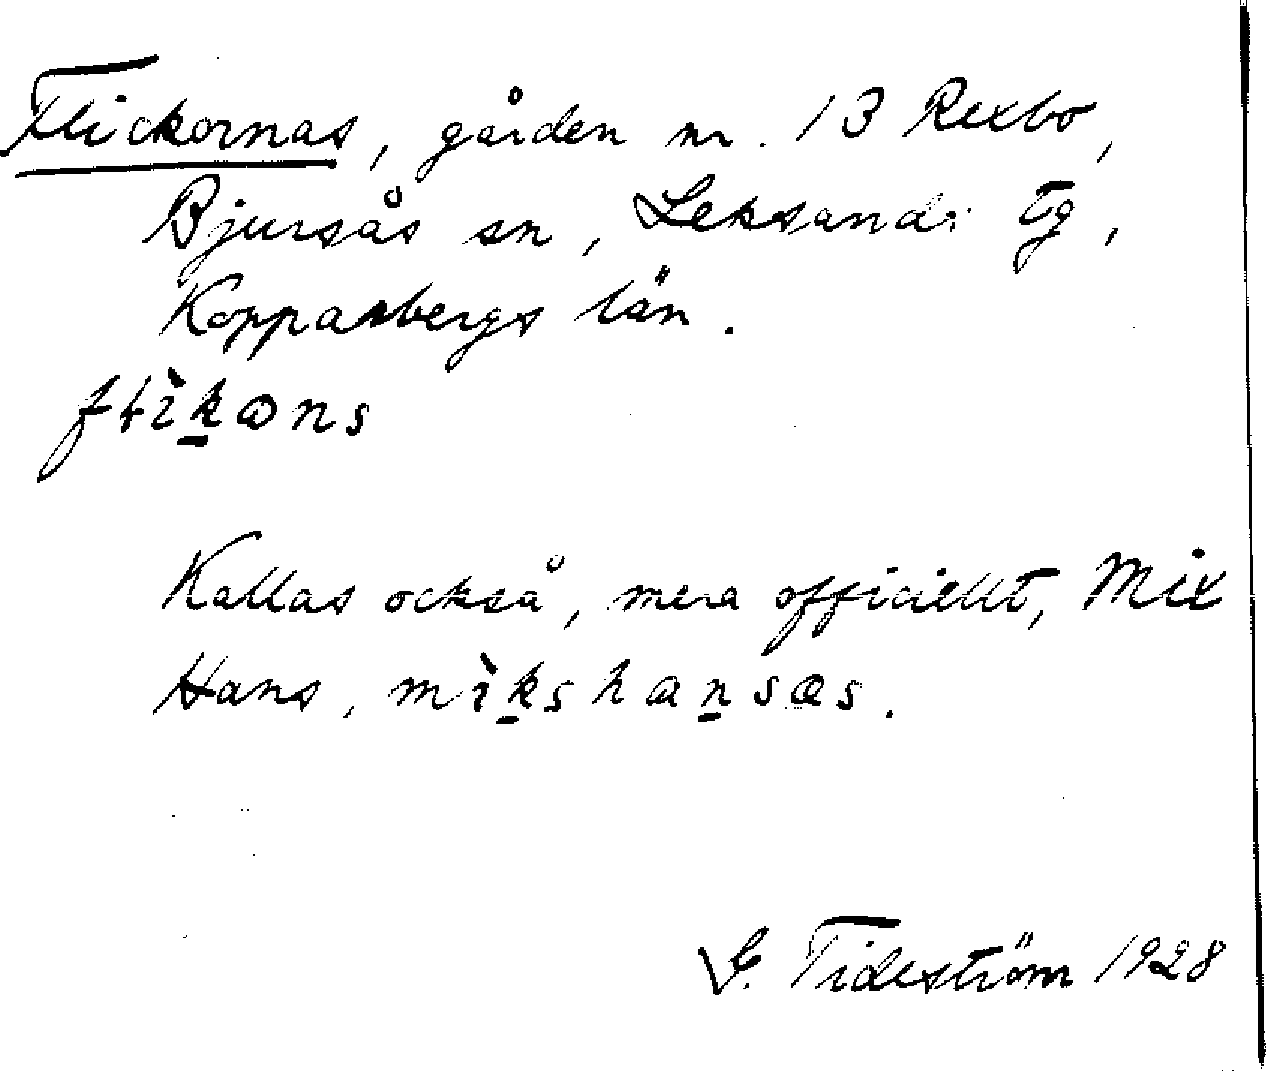 Flickornas, gården nr. 13 Rexbo,
Bjursås sn, Leksands tg,
Kopparbergs län.
fłìk̲ɷns
Kallas också, mera officiellt, Mix
Hans, mìk̲shan̲sas.
G. Tideström 1928